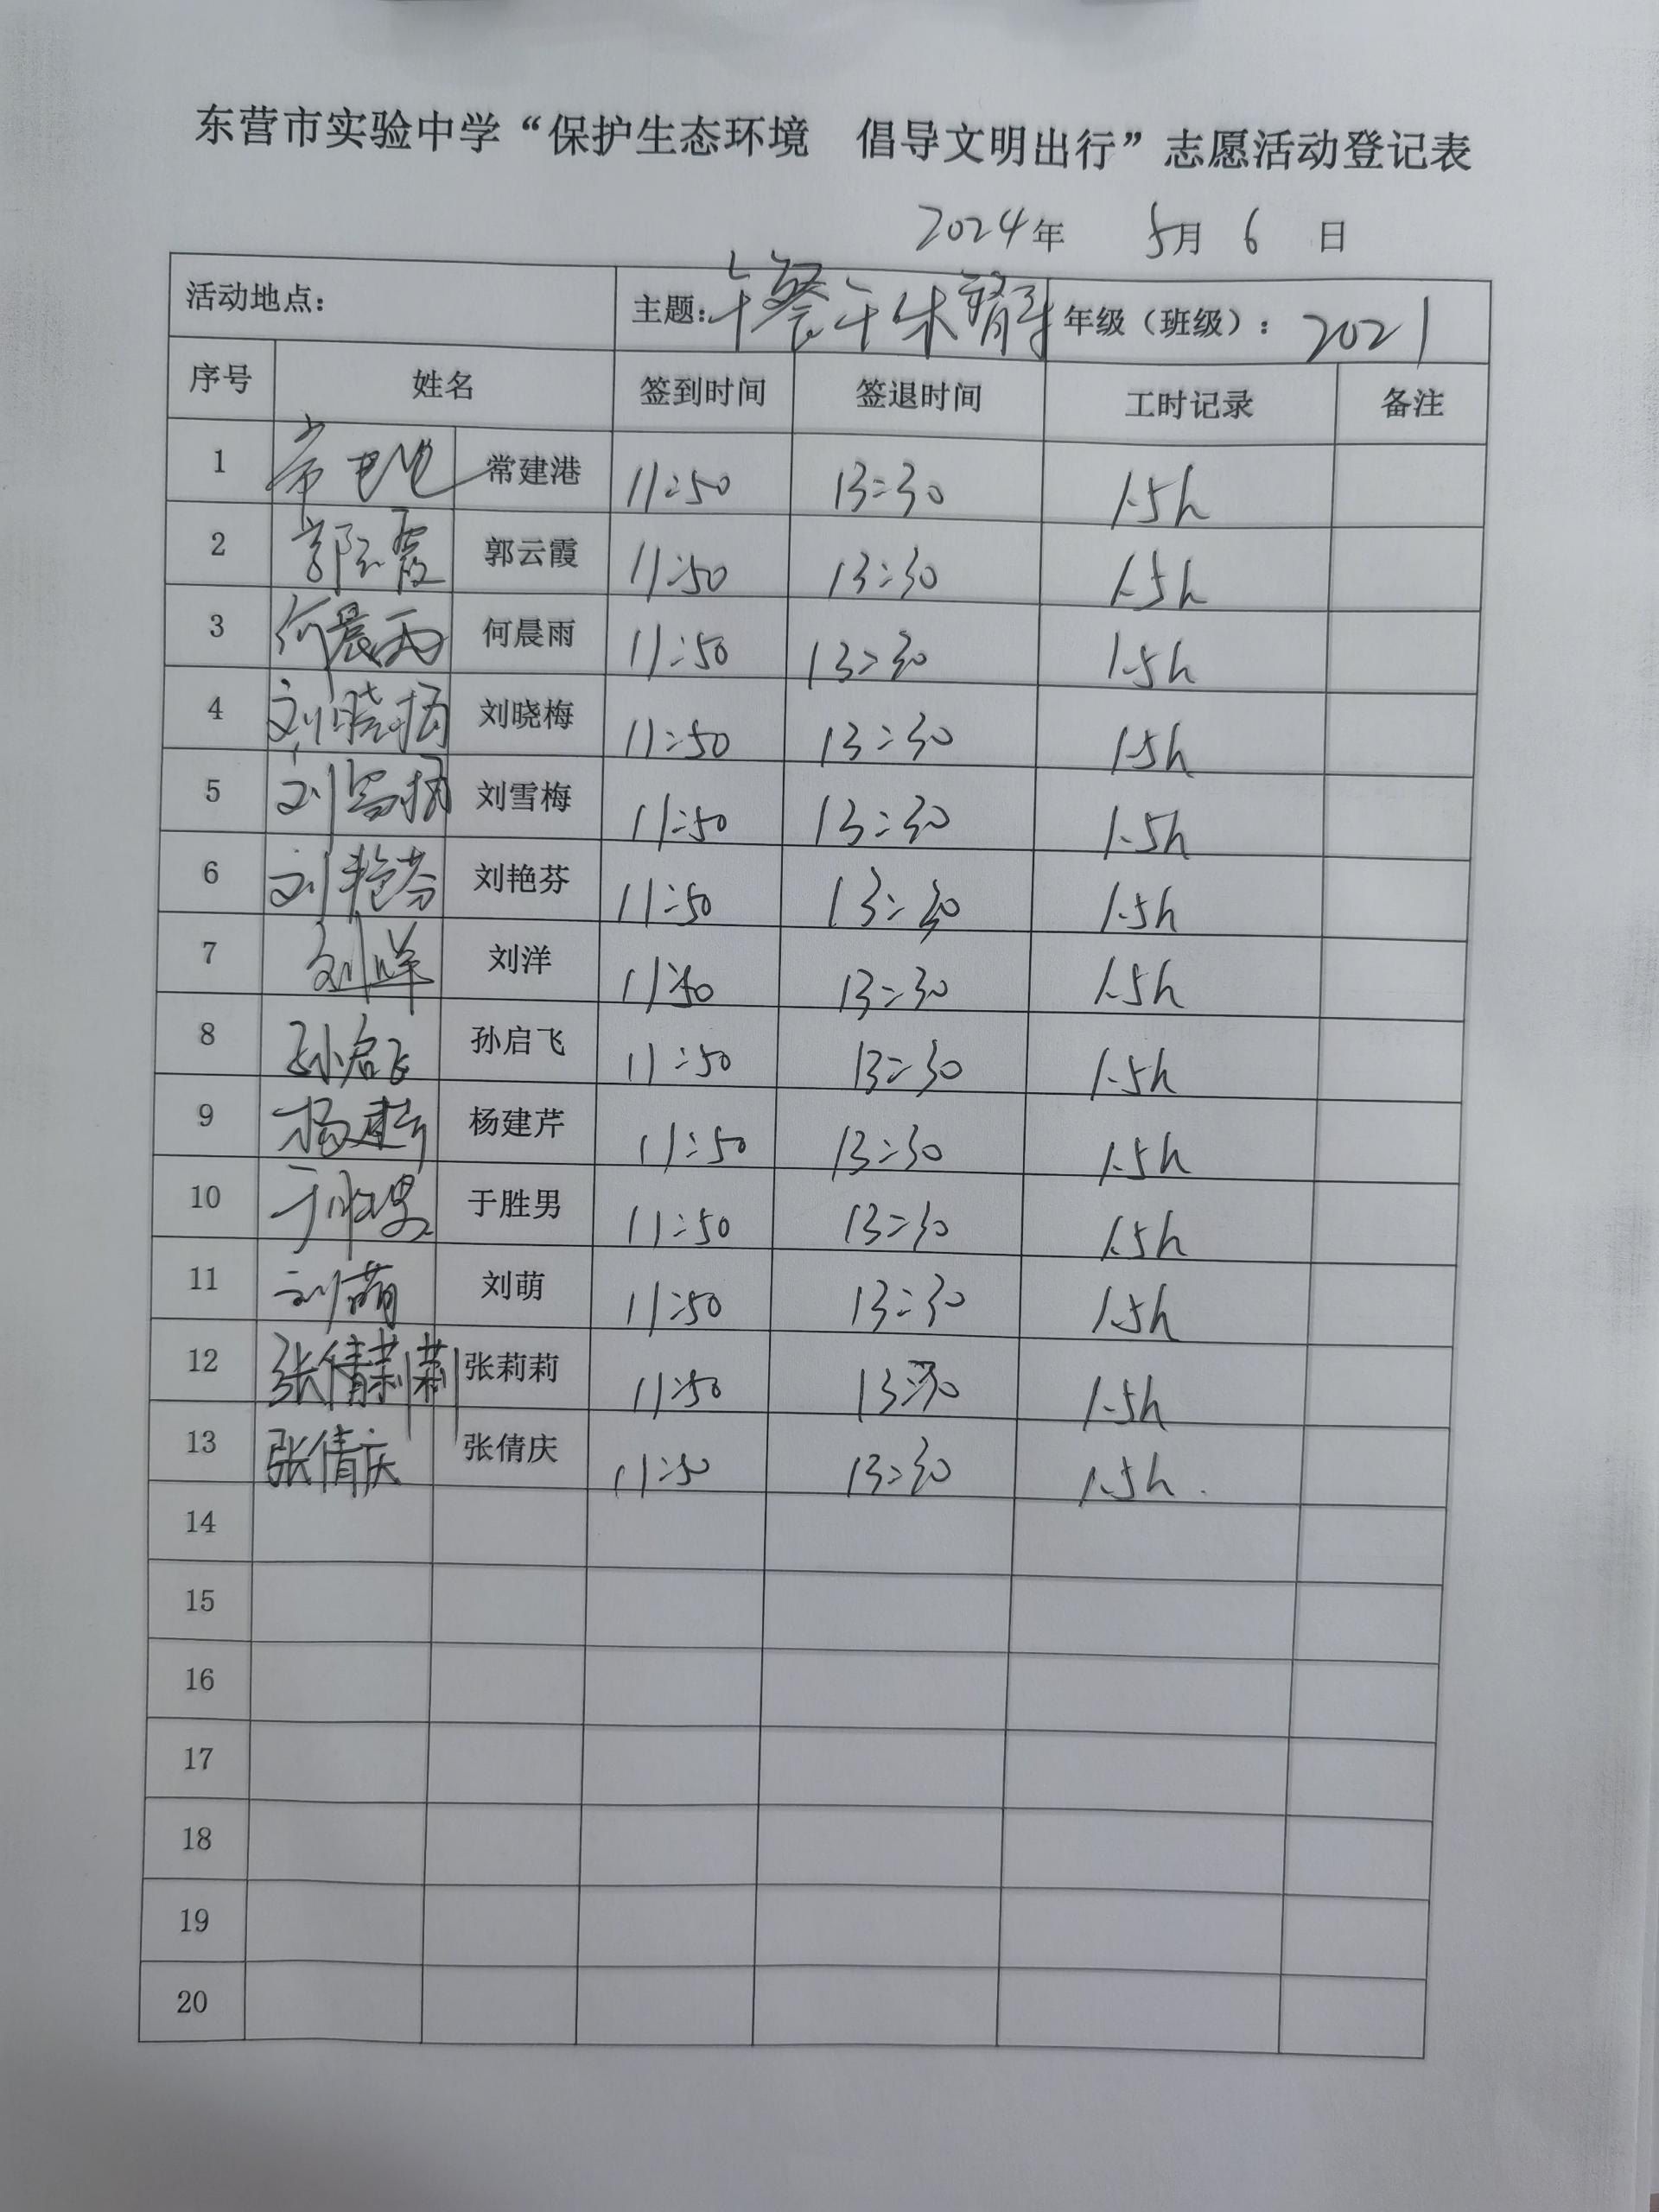 东营市实验中学“保护生态环境 倡导文明出行”志愿活动登记表
2024年 5月 6 日
活动地点: 主题:午餐午休督导 年级（班级）: 2021
序号 姓名 签到时间 签退时间 工时记录 备注
1 常建港 常建港 11:50 13:30 1.5h
2 郭云霞 郭云霞 11:50 13:30 1.5h
3 何晨雨 何晨雨 11:50 13:30 1.5h
4 刘晓梅 刘晓梅 11:50 13:30 1.5h
5 刘雪梅 刘雪梅 11:50 13:30 1.5h
6 刘艳芬 刘艳芬 11:50 13:30 1.5h
7 刘洋 刘洋 11:50 13:30 1.5h
8 孙启飞 孙启飞 11:50 13:30 1.5h
9 杨建芹 杨建芹 11:50 13:30 1.5h
10 于胜男 于胜男 11:50 13:30 1.5h
11 刘萌 刘萌 11:50 13:30 1.5h
12 张倩莉莉 张莉莉 11:50 13:30 1.5h
13 张倩庆 张倩庆 11:50 13:30 1.5h
14
15
16
17
18
19
20